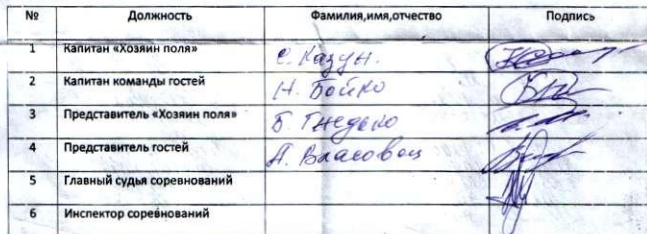 № Должность Фамилия,имя,отчество Подпись
1 Капитан «Хозяин поля» С. Казун.
2 Капитан команды гостей Н. Бойко
3 Представитель «Хозяин поля» Б. Гнедько
4 Представитель гостей А. Власовец
5 Главный судья соревнований
6 Инспектор соревнований